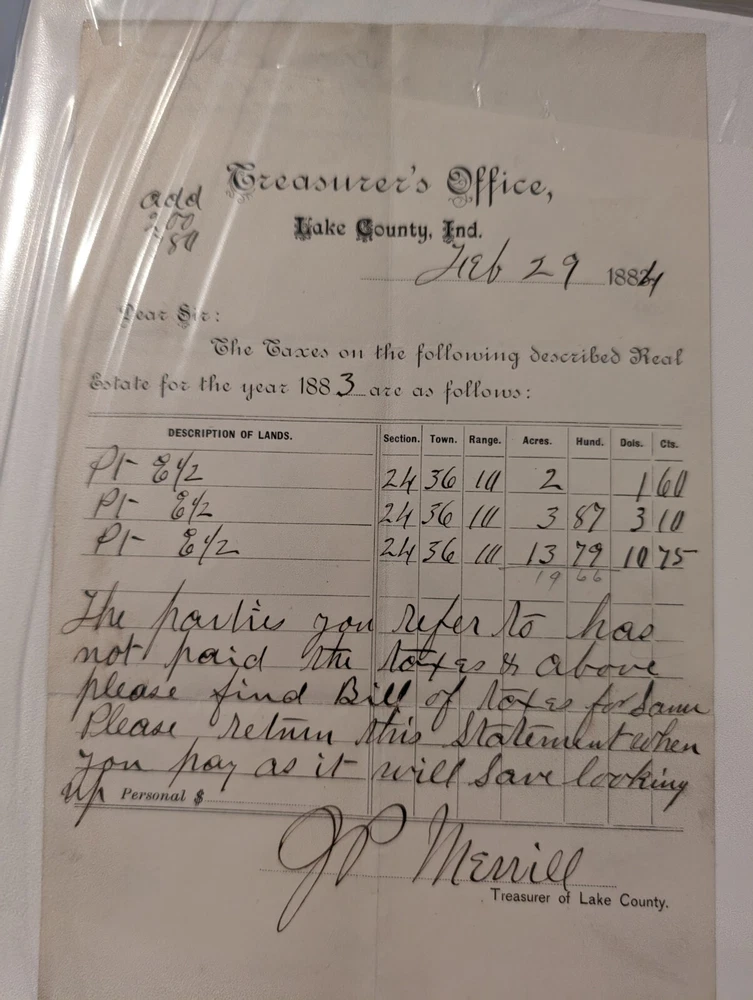 Treasurer's Office,
add
2.00
80
Lake County, Ind.
Feb 29 1884
Dear Sir:
The Taxes on the following described Real
Estate for the year 1883 are as follows:
DESCRIPTION OF LANDS. Section. Town. Range. Acres. Hund. Dols. Cts.
Pt E 1/2 24 36 10 2 1 60
Pt E 1/2 24 36 10 3 87 3 10
Pt E 1/2 24 36 10 13 79 10 75
19 66
The parties you refer to has
not paid the taxes & above
please find Bill of taxes for Same
Please return this Statement when
you pay as it will Save looking
up Personal $
JP Merrill
Treasurer of Lake County.